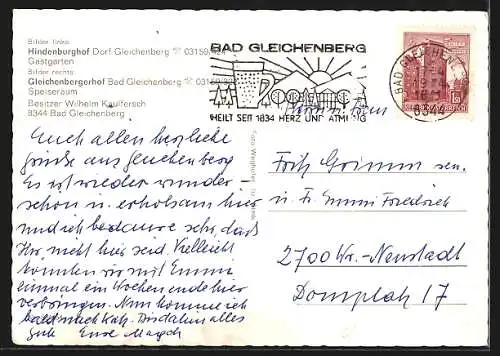 Bilder links:
Hindenburghof Dorf Gleichenberg ☏ 03159/424
Gastgarten
Bilder rechts:
Gleichenbergerhof Bad Gleichenberg ☏ 03159/
Speiseraum
Besitzer Wilhelm Kaulfersch
8344 Bad Gleichenberg
BAD GLEICHENBERG
HEILT SEIT 1834 HERZ UND ATMUNG
BAD GLEICHENBERG
8344
Euch allen herzliche
Grüsse aus Gleichenberg
Es ist wieder wunder
schön u. erholsam hier
und ich bedauere sehr, dass
Ihr nicht hier seid. Vielleicht
könnten wir mit Emmi
einmal ein Wochenende hier
verbringen. Nun komme ich
bald nach Bis dahin alles
Gute Eure
Fritz Grimm sen.
u. F. Emmi Friedrich
2700 Wr.-Neustadt
Domplatz 17